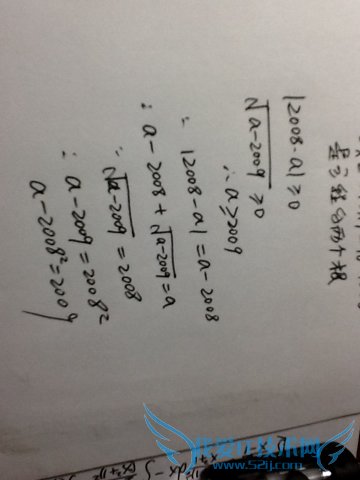 |2008-a|≥0
√a-2009 ≥0
∴a≥2009
∴ |2008-a|=a-2008
∴ a-2008+√a-2009=a
∴ √a-2009=2008
∴ a-2009=2008²
a-2008²=2009
www.52ij.com